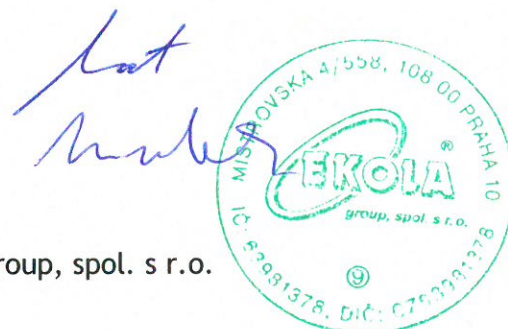 MISTROVSKÁ 4/558, 108 00 PRAHA 10
EKOLA®
group, spol. s r.o.
9
IČ: 63981378, DIČ: CZ63981378
roup, spol. s r.o.